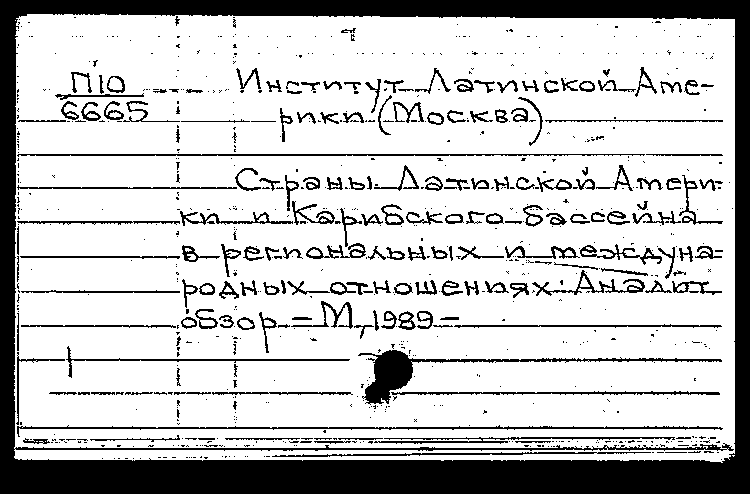 П10 Институт Латинской Аме-
6665 рики (Москва)
Страны Латинской Амери-
ки и Карибского бассейна
в региональных и междуна-
родных отношениях: Аналит.
обзор. – М., 1989 –